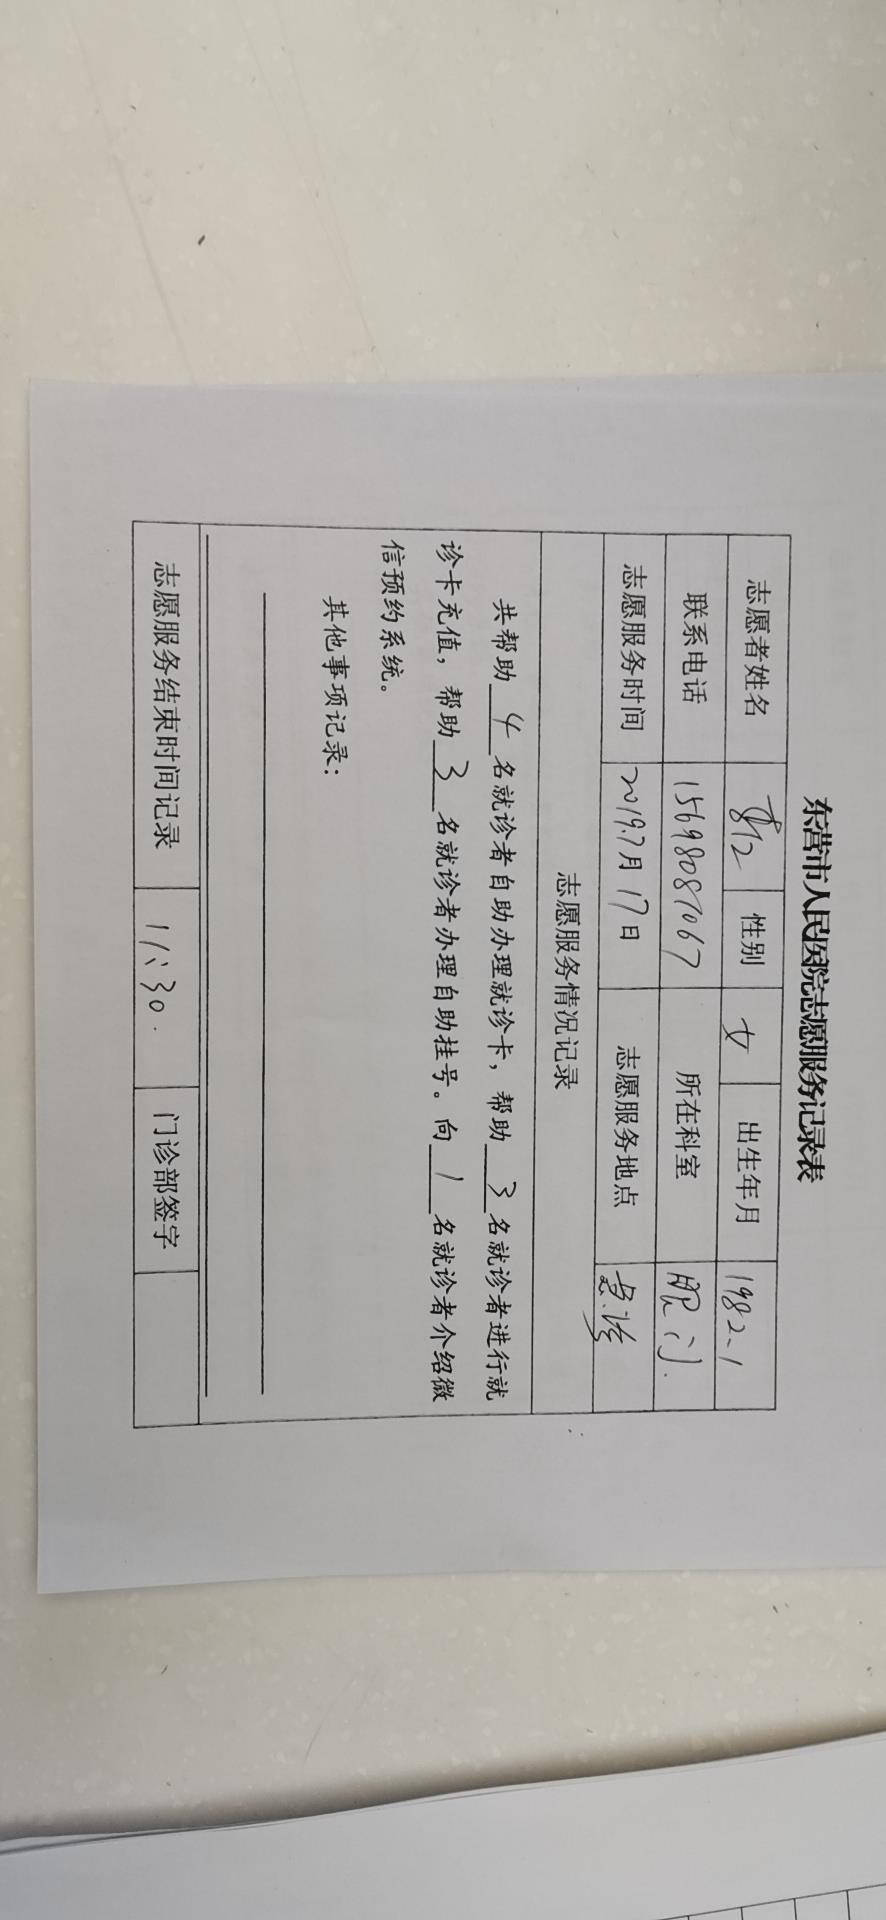 东营市人民医院志愿服务记录表
志愿者姓名 性别 女 出生年月 1982-1
联系电话 15698087067 所在科室 眼门.
志愿服务时间 2019.7月17日 志愿服务地点
志愿服务情况记录
共帮助 4 名就诊者自助办理就诊卡，帮助 3 名就诊者进行就
诊卡充值，帮助 3 名就诊者办理自助挂号。向 1 名就诊者介绍微
信预约系统。
其他事项记录：
志愿服务结束时间记录 11:30. 门诊部签字